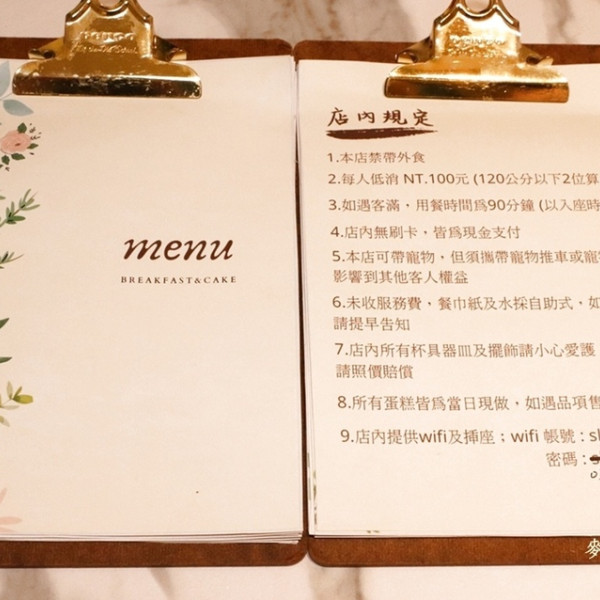 menu
BREAKFAST&CAKE
店內規定
1.本店禁帶外食
2.每人低消 NT.100元 (120公分以下2位算
3.如遇客滿，用餐時間為90分鐘 (以入座時
4.店內無刷卡，皆為現金支付
5.本店可帶寵物，但須攜帶寵物推車或寵
影響到其他客人權益
6.未收服務費，餐巾紙及水採自助式，如
請提早告知
7.店內所有杯具器皿及擺飾請小心愛護
請照價賠償
8.所有蛋糕皆為當日現做，如遇品項售
9.店內提供wifi及插座；wifi 帳號 : s
密碼 :
麥